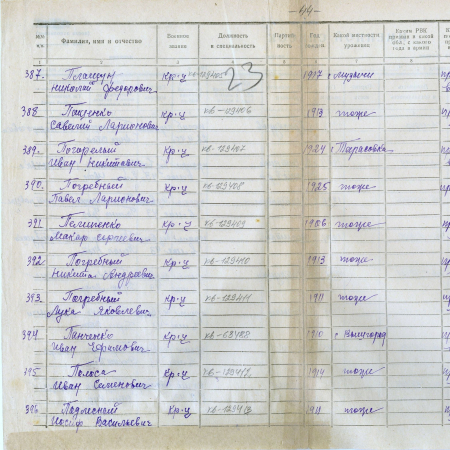 -44-
Фамилия, имя и отчество
Военное звание
Должность и специальность
Партий- ность
Год рожден.
Какой местности уроженец
Каким РВК
387. Николай Федорович Кр-ц 23 1917
388 Поценко Савелий Ларионович Кр-ц кв-123406 1913 тоже
389. Погорелый Иван Никитович Кр-ц кв-123407 1924 с Тарасовка
390. Погребный Павел Ларионович Кр-ц кв-123408 1925 тоже
391 Пелипенко Макар Сергеевич Кр-ц кв-123409 1906 тоже
392 Погребный Никита Андреевич Кр-ц кв-123410 1913 тоже
393. Погребный Лука Яковлевич Кр-ц кв-123411 1911 тоже
394 Панченко Иван Ефимович Кр-ц 1910 с Вышгород
395 Полоса Иван Семенович Кр-ц 1914 тоже
396 Подлесный Иосиф Васильевич Кр-ц кв-123413 1911 тоже